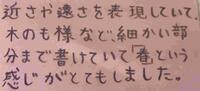 近さや遠さを表現していて、
木のも様など、細かい部
分まで書けていて「春」という
感じがとてもしました。